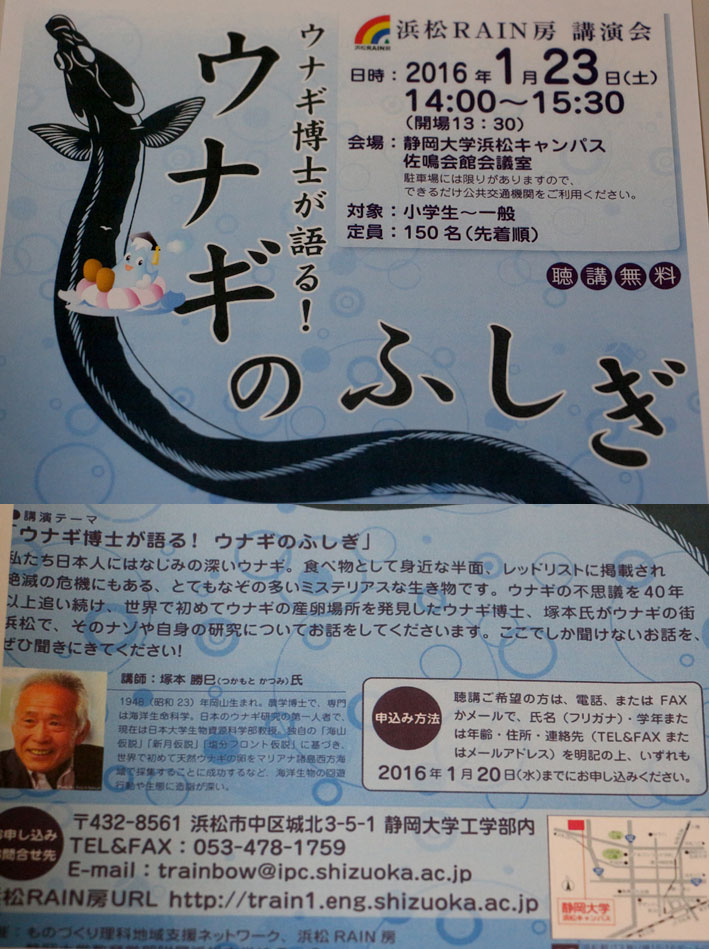 浜松RAIN房 講演会
日時：2016年1月23日(土)
14:00～15:30
(開場13：30)
会場：静岡大学浜松キャンパス
佐鳴会館会議室
駐車場には限りがありますので、
できるだけ公共交通機関をご利用ください。
対象：小学生～一般
定員：150名(先着順)
聴講無料
ウナギ博士が語る！
ウナギのふしぎ
●講演テーマ
「ウナギ博士が語る！ ウナギのふしぎ」
私たち日本人にはなじみの深いウナギ。食べ物として身近な半面、レッドリストに掲載され
絶滅の危機にもある、とてもなぞの多いミステリアスな生き物です。ウナギの不思議を40年
以上追い続け、世界で初めてウナギの産卵場所を発見したウナギ博士、塚本氏がウナギの街
浜松で、そのナゾや自身の研究についてお話をしてくださいます。ここでしか聞けないお話を、
ぜひ聞きにきてください！
講師：塚本 勝巳(つかもと かつみ)氏
1948（昭和23）年岡山生まれ。農学博士で、専門
は海洋生命科学。日本のウナギ研究の第一人者で、
現在は日本大学生物資源科学部教授。独自の「海山
仮説」「新月仮説」「塩分フロント仮説」に基づき、
世界で初めて天然ウナギの卵をマリアナ諸島西方海
域で採集することに成功するなど、海洋生物の回遊
行動や生態に造詣が深い。
申込み方法
聴講ご希望の方は、電話、またはFAX
かメールで、氏名（フリガナ）・学年また
は年齢・住所・連絡先（TEL&FAXまた
はメールアドレス）を明記の上、いずれも
2016年1月20日(水)までにお申し込みください。
お申し込み
お問合せ先
〒432-8561 浜松市中区城北3-5-1 静岡大学工学部内
TEL&FAX：053-478-1759
E-mail：trainbow@ipc.shizuoka.ac.jp
浜松RAIN房URL http://train1.eng.shizuoka.ac.jp
静岡大学
浜松キャンパス
主催：ものづくり理科地域支援ネットワーク、浜松RAIN房